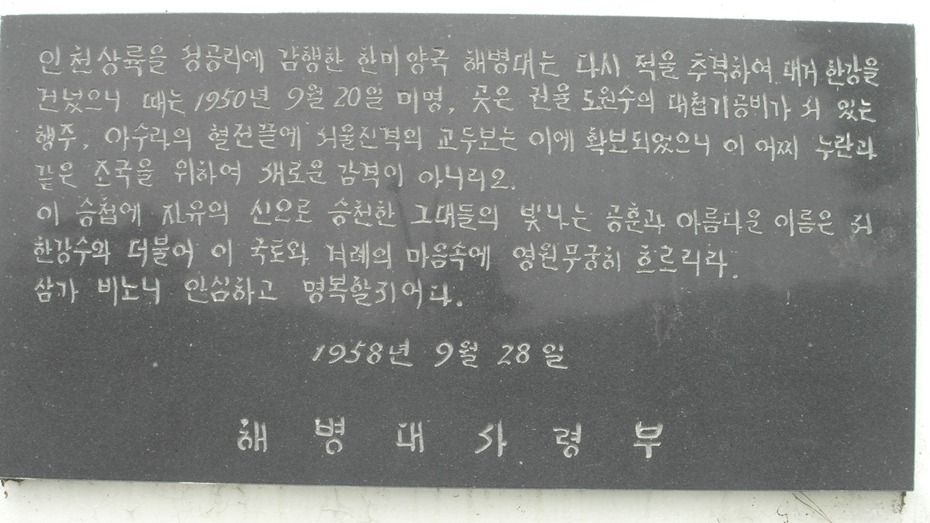 인천상륙을 성공리에 감행한 한미양국 해병대는 다시 적을 추격하여 대거 한강을
건넜으니 때는 1950년 9월 20일 미명, 곳은 권율 도원수의 대첩기공비가 서 있는
행주, 아수라의 혈전끝에 서울진격의 교두보는 이에 확보되었으니 이 어찌 누란과
같은 조국을 위하여 새로운 감격이 아니리오.
이 승첩에 자유의 신으로 승천한 그대들의 빛나는 공훈과 아름다운 이름은 저
한강수와 더불어 이 국토와 겨레의 마음속에 영원무궁히 흐르리라.
삼가 비노니 안심하고 명복할지어다.
1958년 9월 28일
해병대사령부